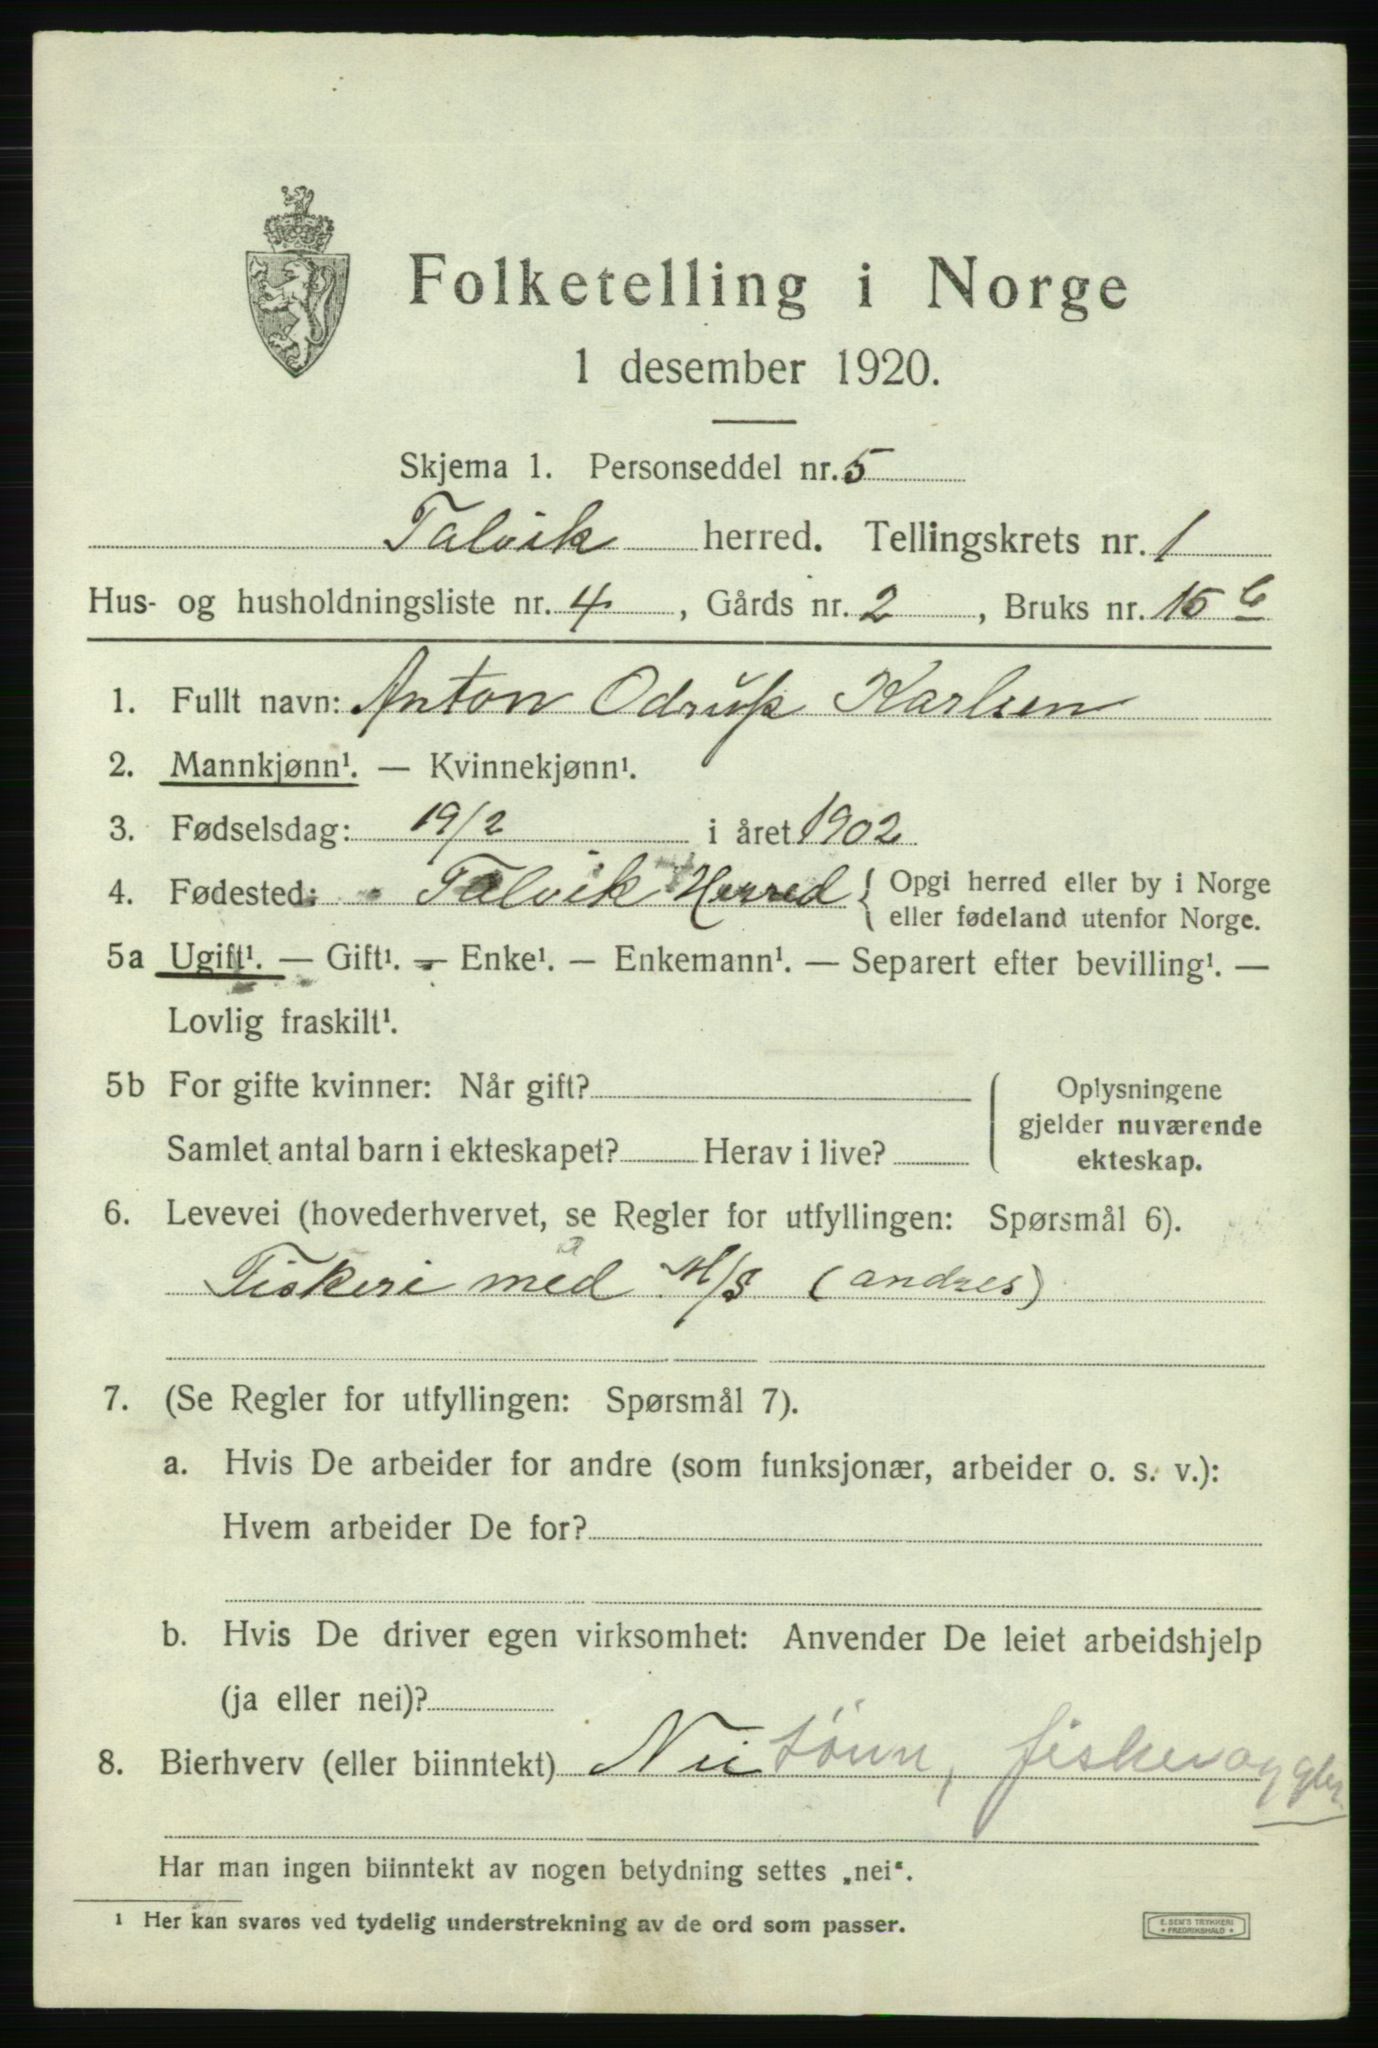 Folketelling i Norge
1 desember 1920.
Skjema 1. Personseddel nr. 5
Talvik herred. Tellingskrets nr. 1
Hus- og husholdningsliste nr. 4, Gårds nr. 2, Bruks nr. 15 b
1. Fullt navn: Anton Odrup Karlsen
2. Mannkjønn¹. — Kvinnekjønn¹.
3. Fødselsdag: 19/2 i året 1902
4. Fødested: Talvik Herred { Opgi herred eller by i Norge
eller fødeland utenfor Norge.
5a Ugift¹. — Gift¹. — Enke¹. — Enkemann¹. — Separert efter bevilling¹. —
Lovlig fraskilt¹.
5b For gifte kvinner: Når gift?
Samlet antal barn i ekteskapet? Herav i live?
Oplysningene
gjelder nuværende
ekteskap.
6. Levevei (hovederhvervet, se Regler for utfyllingen: Spørsmål 6).
Fiskeri med M/S (andres)
7. (Se Regler for utfyllingen: Spørsmål 7).
a. Hvis De arbeider for andre (som funksjonær, arbeider o. s. v.):
Hvem arbeider De for?
b. Hvis De driver egen virksomhet: Anvender De leiet arbeidshjelp
(ja eller nei)?
8. Bierhverv (eller biinntekt) Nei sönn, fisker og
Har man ingen biinntekt av nogen betydning settes „nei“.
¹ Her kan svares ved tydelig understrekning av de ord som passer.
E. SEM'S TRYKKERI
• FREDRIKSHALD •